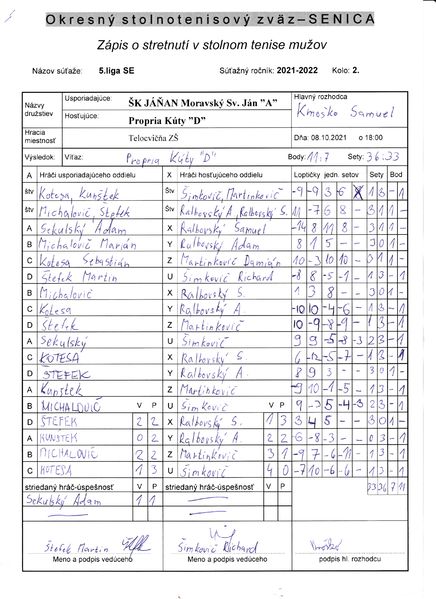 Okresný stolnotenisový zväz–SENICA
Zápis o stretnutí v stolnom tenise mužov
Názov súťaže: 5.liga SE Súťažný ročník: 2021-2022 Kolo: 2.
Názvy družstiev Usporiadajúce: ŠK JÁŇAN Moravský Sv. Ján "A" Hlavný rozhodca
Hosťujúce: Propria Kúty "D" Kmeško Samuel
Hracia miestnosť Telocvičňa ZŠ Dňa: 08.10.2021 o 18:00
Výsledok: Víťaz: Propria Kúty "D" Body: 11:7 Sety: 36:33
A Hráči usporiadajúceho oddielu X Hráči hosťujúceho oddielu Loptičky jedn. setov Sety Bod
štv Kotesa, Kunštek Štv Šimkovič, Martinkovič -9 -9 3 -6 1 3 - 1
štv Michalovič, Štefek Štv Ralbovský A, Ralbovský S. 11 -7 6 8 - 3 1 1 -
A Sekulský Adam X Ralbovský Samuel -14 8 11 8 - 3 1 1 -
B Michalovič Marián Y Ralbovský Adam 8 1 5 - - 3 0 1 -
C Kotesa Sebastián Z Martinkovič Damián 10 -3 10 10 - 3 1 1
D Štefek Martin U Šimkovič Richard -8 8 -5 -1 - 1 3 - 1
B Michalovič X Ralbovský S. 1 3 8 - - 3 0 1 -
C Kotesa Y Ralbovský A. -10 10 -4 -6 - 1 3 - 1
D Štefek Z Martinkovič 10 -9 -8 -9 - 1 3 - 1
A Sekulský U Šimkovič 9 9 -5 -8 -3 2 3 - 1
C KOTESA X Ralbovský S 6 -12 -5 -7 - 1 3 - 1
D ŠTEFEK Y Ralbovský A. 8 9 3 - - 3 0 1 -
A Kunštek Z Martinkovič -9 10 -1 -5 - 1 3 - 1
B MICHALOVIČ V P U Šimkovič V P 9 -3 5 -4 -3 2 3 - 1
D ŠTEFEK 2 2 X Ralbovský S. 1 3 3 4 5 - - 3 0 1 -
A KUNSTEK 0 2 Y Ralbovský A. 2 2 -6 -8 -3 - - 0 3 - 1
B MICHALOVIČ 2 2 Z Martinkovič 3 1 -9 7 -6 -11 - 1 3 - 1
C KOTESA 1 3 U Šimkovič 4 0 -7 10 -6 -6 - 1 3 - 1
striedaný hráč-úspešnosť V P striedaný hráč-úspešnosť V P 33 36 7 11
Sekulský Adam 1 1
Štefek Martin Šimkovič Richard
Meno a podpis vedúceho Meno a podpis vedúceho podpis hl. rozhodcu